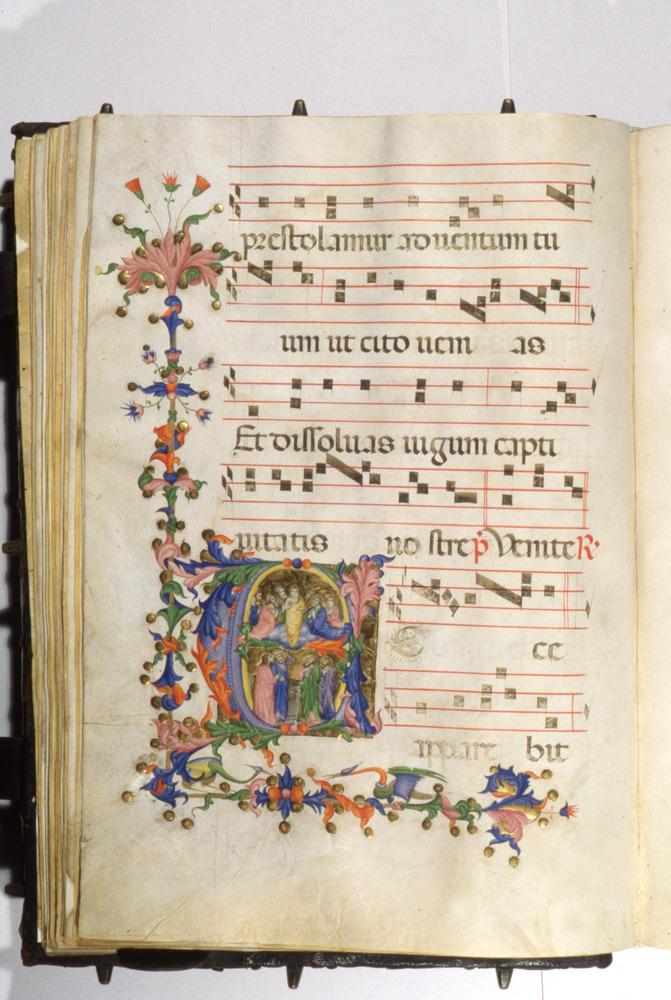 prestolamur adventum tu
um ut cito veni as
Et dissolvas iugum capti
vitatis no stre p̃ Venite R̃
E ce
appare bit